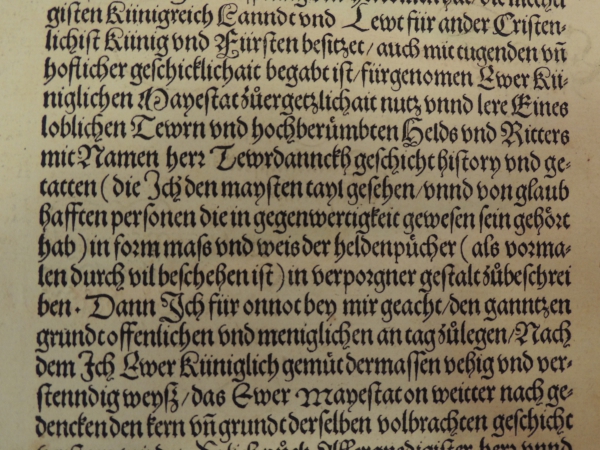 gisten Künigreich Lanndt vnd Lewt für ander Cristen-
lichist Künig vnd Fürsten besitzet/ auch mit tugenden vn̄
hoflicher geschicklichait begabt ist/ fürgenomen Ewer Kü-
niglichen Mayestat zůergetzlichait nutz vnnd lere Eines
loblichen Tewrn vnd hochberümbten Helds vnd Ritters
mit Namen herr Tewrdannckh geschicht history vnd ge-
tatten (die Ich den maysten tayl gesehen/ vnnd von glaub
hafften personen die in gegenwertigkeit gewesen sein gehört
hab) in form mass vnd weis der heldenpücher (als vorma-
len durch vil beschehen ist) in verporgner gestalt zůbeschrei
ben. Dann Ich für onnot bey mir geacht/ den ganntzen
grundt offenlichen vnd meniglichen an tag zůlegen/ Nach
dem Ich Ewer Küniglich gemüt dermassen vehig vnd ver-
stenndig weysz/ das Ewer Mayestat on weitter nach ge-
dencken den kern vn̄ grundt derselben volbrachten geschicht